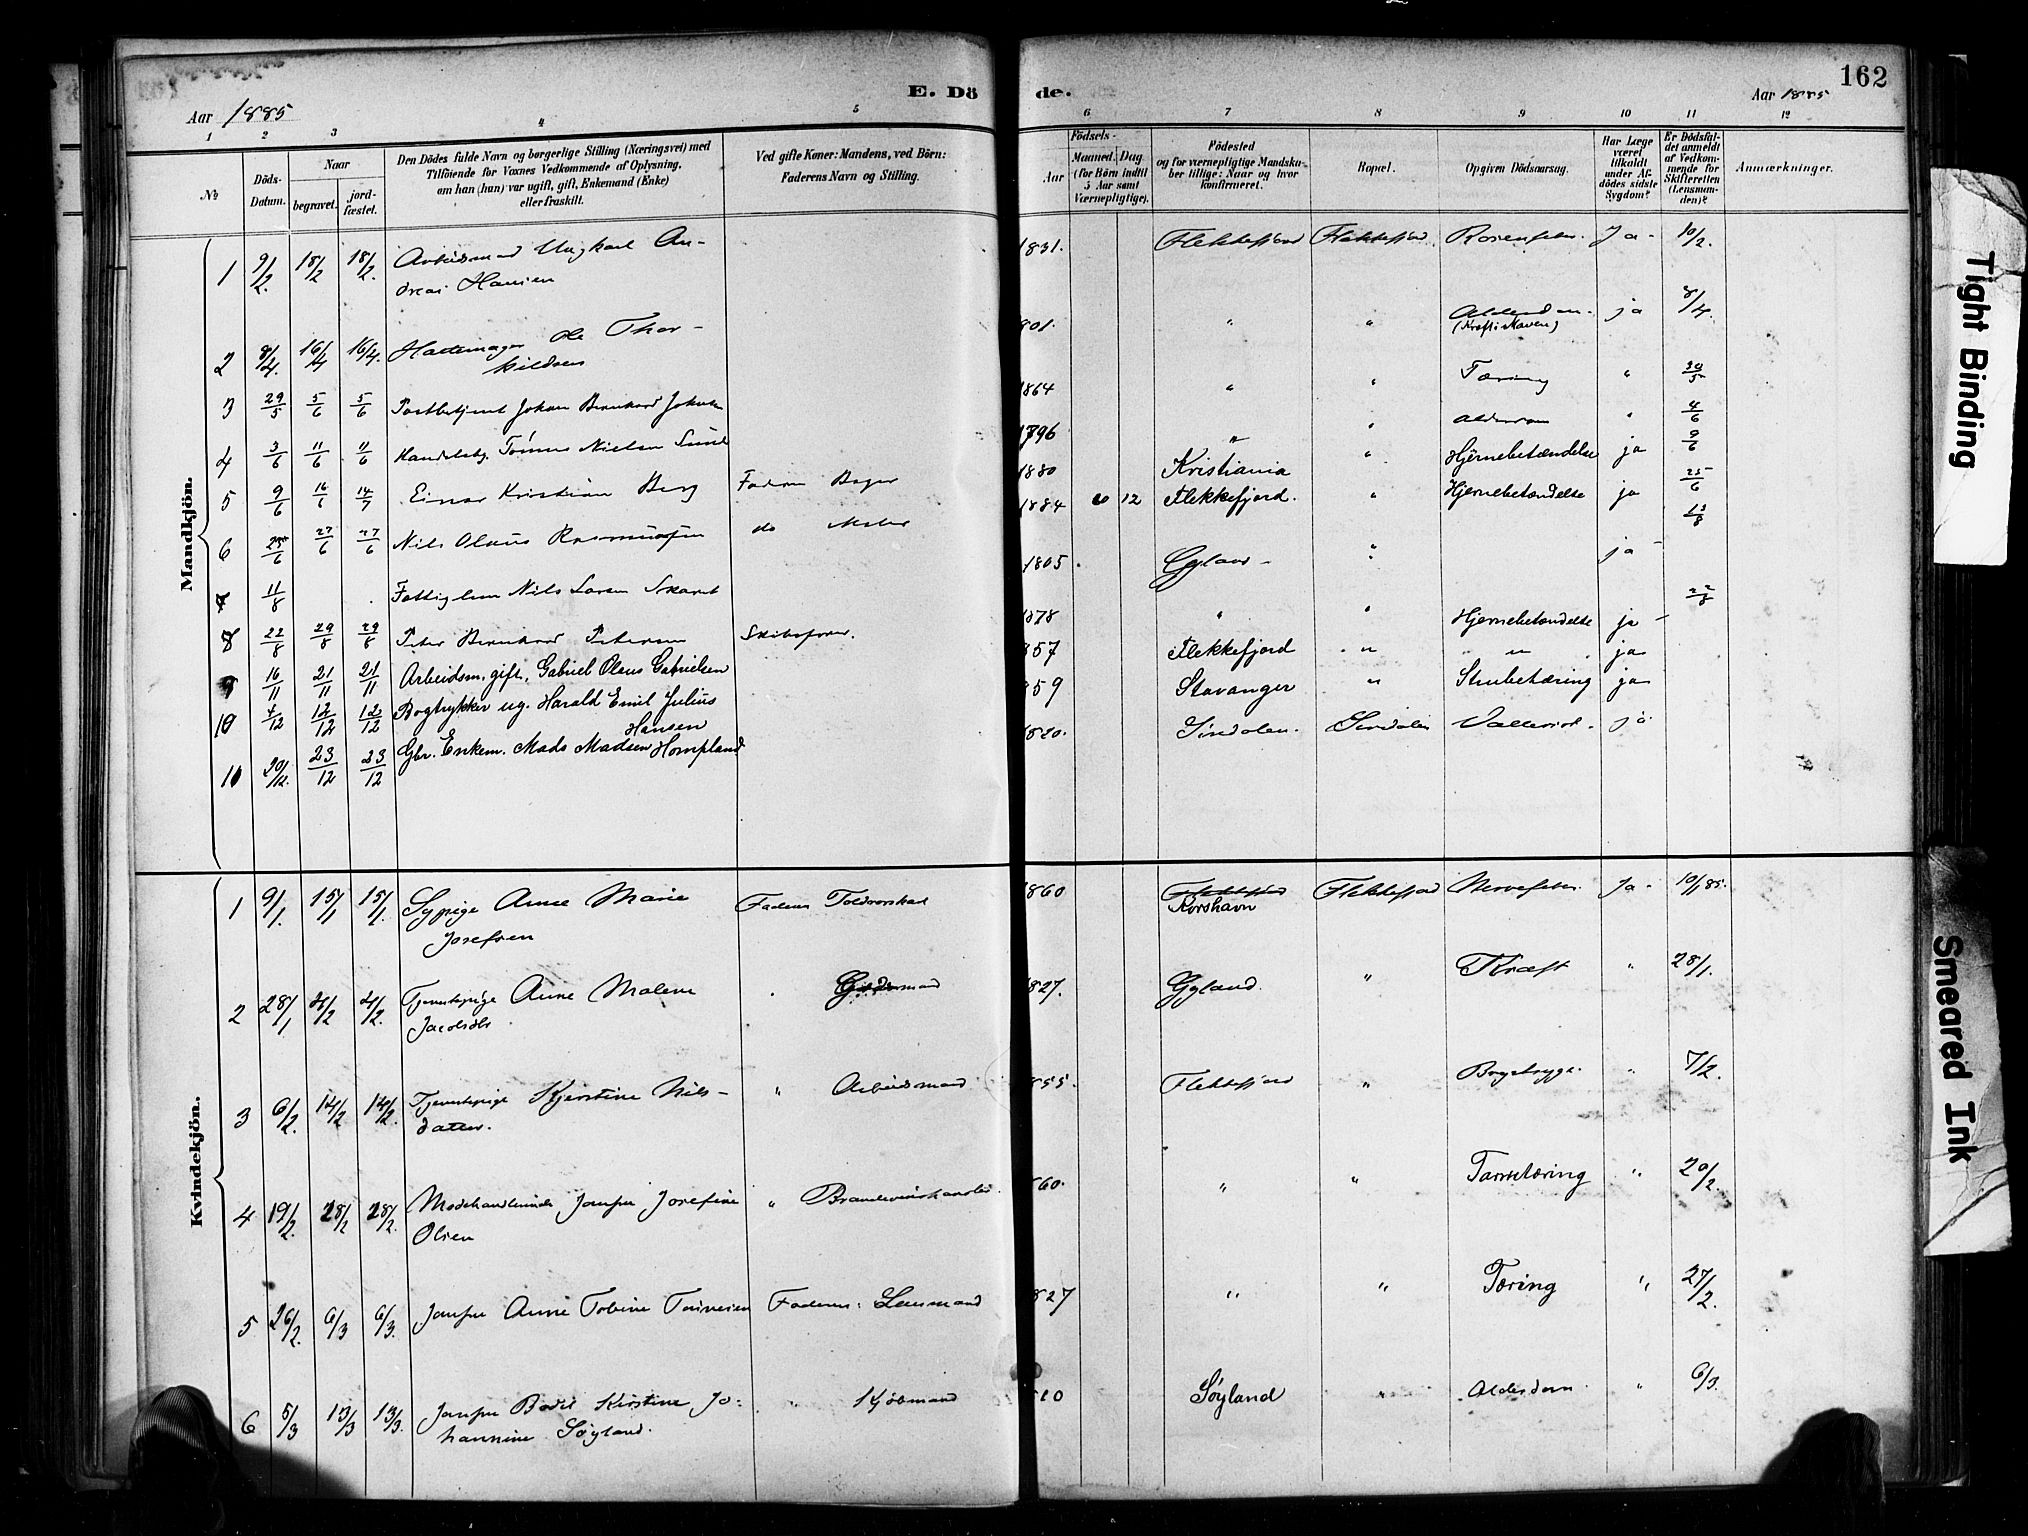 162
E. Dö de.
Aar 1885
Aar 1885
1 2 3 4 5 6 7 8 9 10 11 12
No
Döds-Datum.
Naar
begravet.
jord-fæstet.
Den Dödes fulde Navn og borgerlige Stilling (Næringsvei) med
Tilföiende for Voxnes Vedkommende af Oplysning,
om han (hun) var ugift, gift, Enkemand (Enke)
eller fraskilt.
Ved gifte Koner: Mandens, ved Börn:
Faderens Navn og Stilling.
Födsels-
Aar
Maaned. Dag
(for Börn indtil
5 Aar samt
Værnepligtige).
Födested
og for værnepligtige Mandska-
ber tillige: Naar og hvor
konfirmeret.
Bopæl.
Opgiven Dödsaarsag.
Har Læge
været
tilkaldt
under Af-
dödes sidste
Sygdom?
Er Dödsfal-
det anmeldt
af Vedkom-
mende for
Skifteretten
(Lensman-
den)?
Anmærkninger.
Mandkjön.
1 9/2. 18/2 18/2. Arbeidsmand Ungkarl An-
dreas Hansen
1831. Flekkefjord Flekkefjord Ja- 10/2.
2 8/4. 16/4 16/4. Hattemager Ole Thor-
kildsen
801. " " Alderdom
(Kræft i Maven) ja 8/4.
3 29/5 5/6 5/6 Postbetjent Johan Bernhard
1864 " " Tæring " 30/5
4 3/6 11/6 11/6 Handelsbg. Tönnes Nielsen
1796 " " Alderdom " 4/6
5 9/6 Einar Kristian Berg Faderen Bager
1880 Kristiania " Hjernebetændelse ja 9/6
6 25/6 27/6 27/6 Nils Olaus Rasmussen do Maler
1884 6 12 Flekkefjord. " Hjernebetændelse ja 25/6
7 11/8 Nils Larsen
1805 Gyland - " ja -
8 22/8 29/8 29/8 Peter Bernhard Petersen Skibsförer.
1878 " " Hjernebetændelse ja -
9 16/11 21/11 21/11 Arbeidsm. gift, Gabriel Olaus Gabrielsen
857 Flekkefjord " " ja
10 4/12 12/12 12/12 Bogtrykker ug. Harald Emil Julius
Hansen
859 Stavanger " Strubetæring ja
11 20/12. 23/12 23/12 Gbr. Enkem. Mads Madsen Hompland
1820. Sirdalen. Sirdalen ja
Kvindekjön.
1 9/1. 15/1 15/1. Sypige Anne Marie
Josefsen
Faderen
1860 Flekkefjord
Korshavn Flekkefjord Nervefeber. Ja- 10/1 85.
2 28/1 4/2 4/2. Tjenestepige Anne Malene
Jacobsdtr.
Gaardmand
827. Gyland. " Kræft " 28/1.
3 6/2. 14/2 14/2. Tjenestepige Kjerstine Nils-
datter.
" Arbeidsmand
855. Flekkefjord " " 7/2.
4 19/2. 28/2 28/2. Modehandlerinde Jomfru Josefine
Olsen
" Brændevinshandler.
860. " " Tarmtæring " 20/2.
5 26/2. 6/3 6/3. Jomfru Anne Tobine Faderen: Lensmand
827 " " Tæring " 27/2.
6 5/3 13/3 13/3. Jomfru Bodil Kirstine Jo=
hannine Søyland.
" Kjøbmand
810 Søyland " Alderdom " 6/3.
Tight Binding
Smeared Ink